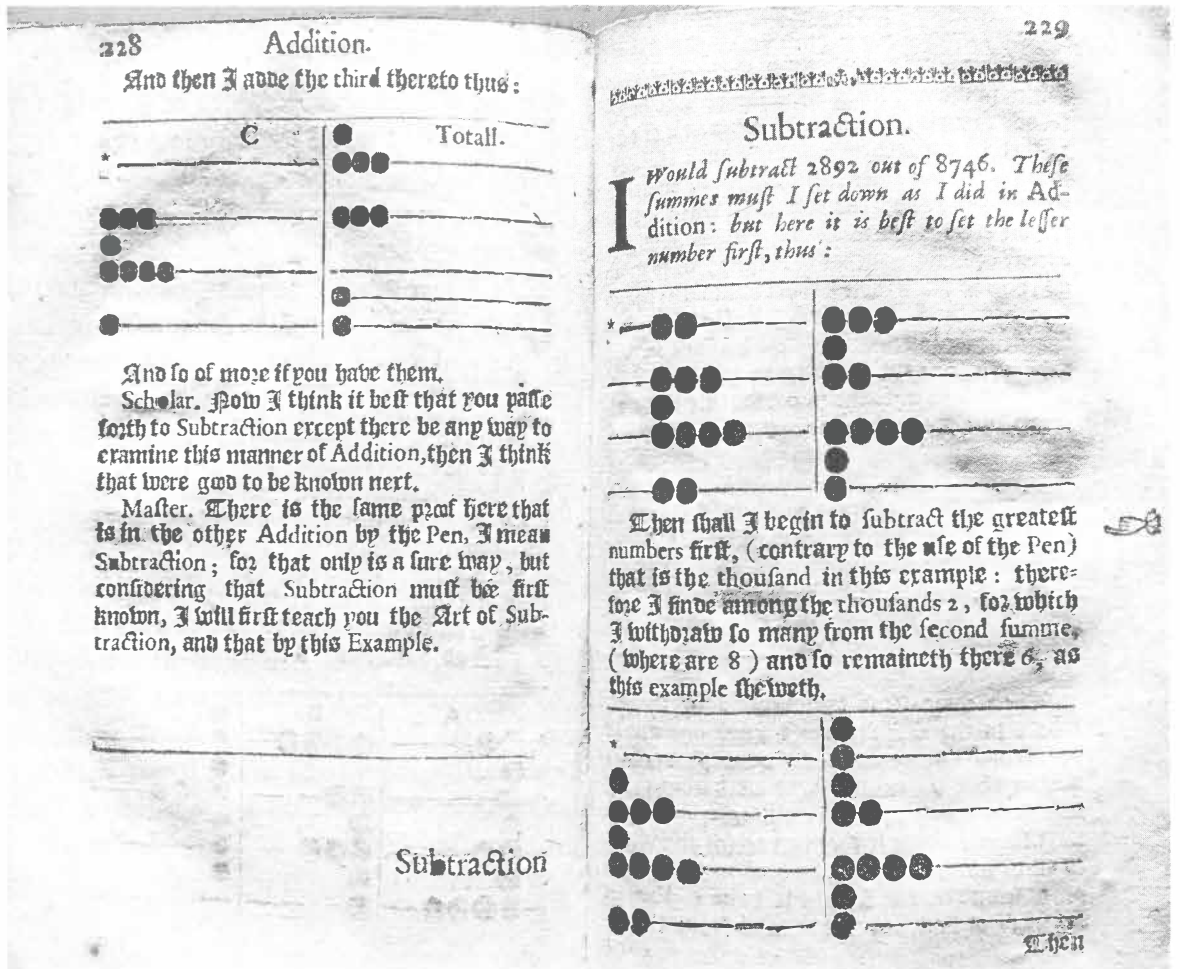 228 Addition.
And then I adde the third thereto thus:
C Totall.
*
And so of more if you have them.
Scholar. Now I think it best that you passe
forth to Subtraction except there be any way to
examine this manner of Addition, then I think
that were good to be known next.
Master. There is the same proof here that
is in the other Addition by the Pen, I mean
Subtraction; for that only is a sure way, but
considering that Subtraction must bee first
known, I will first teach you the Art of Sub-
traction, and that by this Example.
Subtraction
229
Subtraction.
I Would subtract 2892 out of 8746. These
summes must I set down as I did in Ad-
dition: but here it is best to set the lesser
number first, thus:
*
Then shall I begin to subtract the greatest
numbers first, (contrary to the use of the Pen)
that is the thousand in this example: there-
fore I finde among the thousands 2, for which
I withdraw so many from the second summe,
(where are 8) and so remaineth there 6, as
this example sheweth.
*
Then